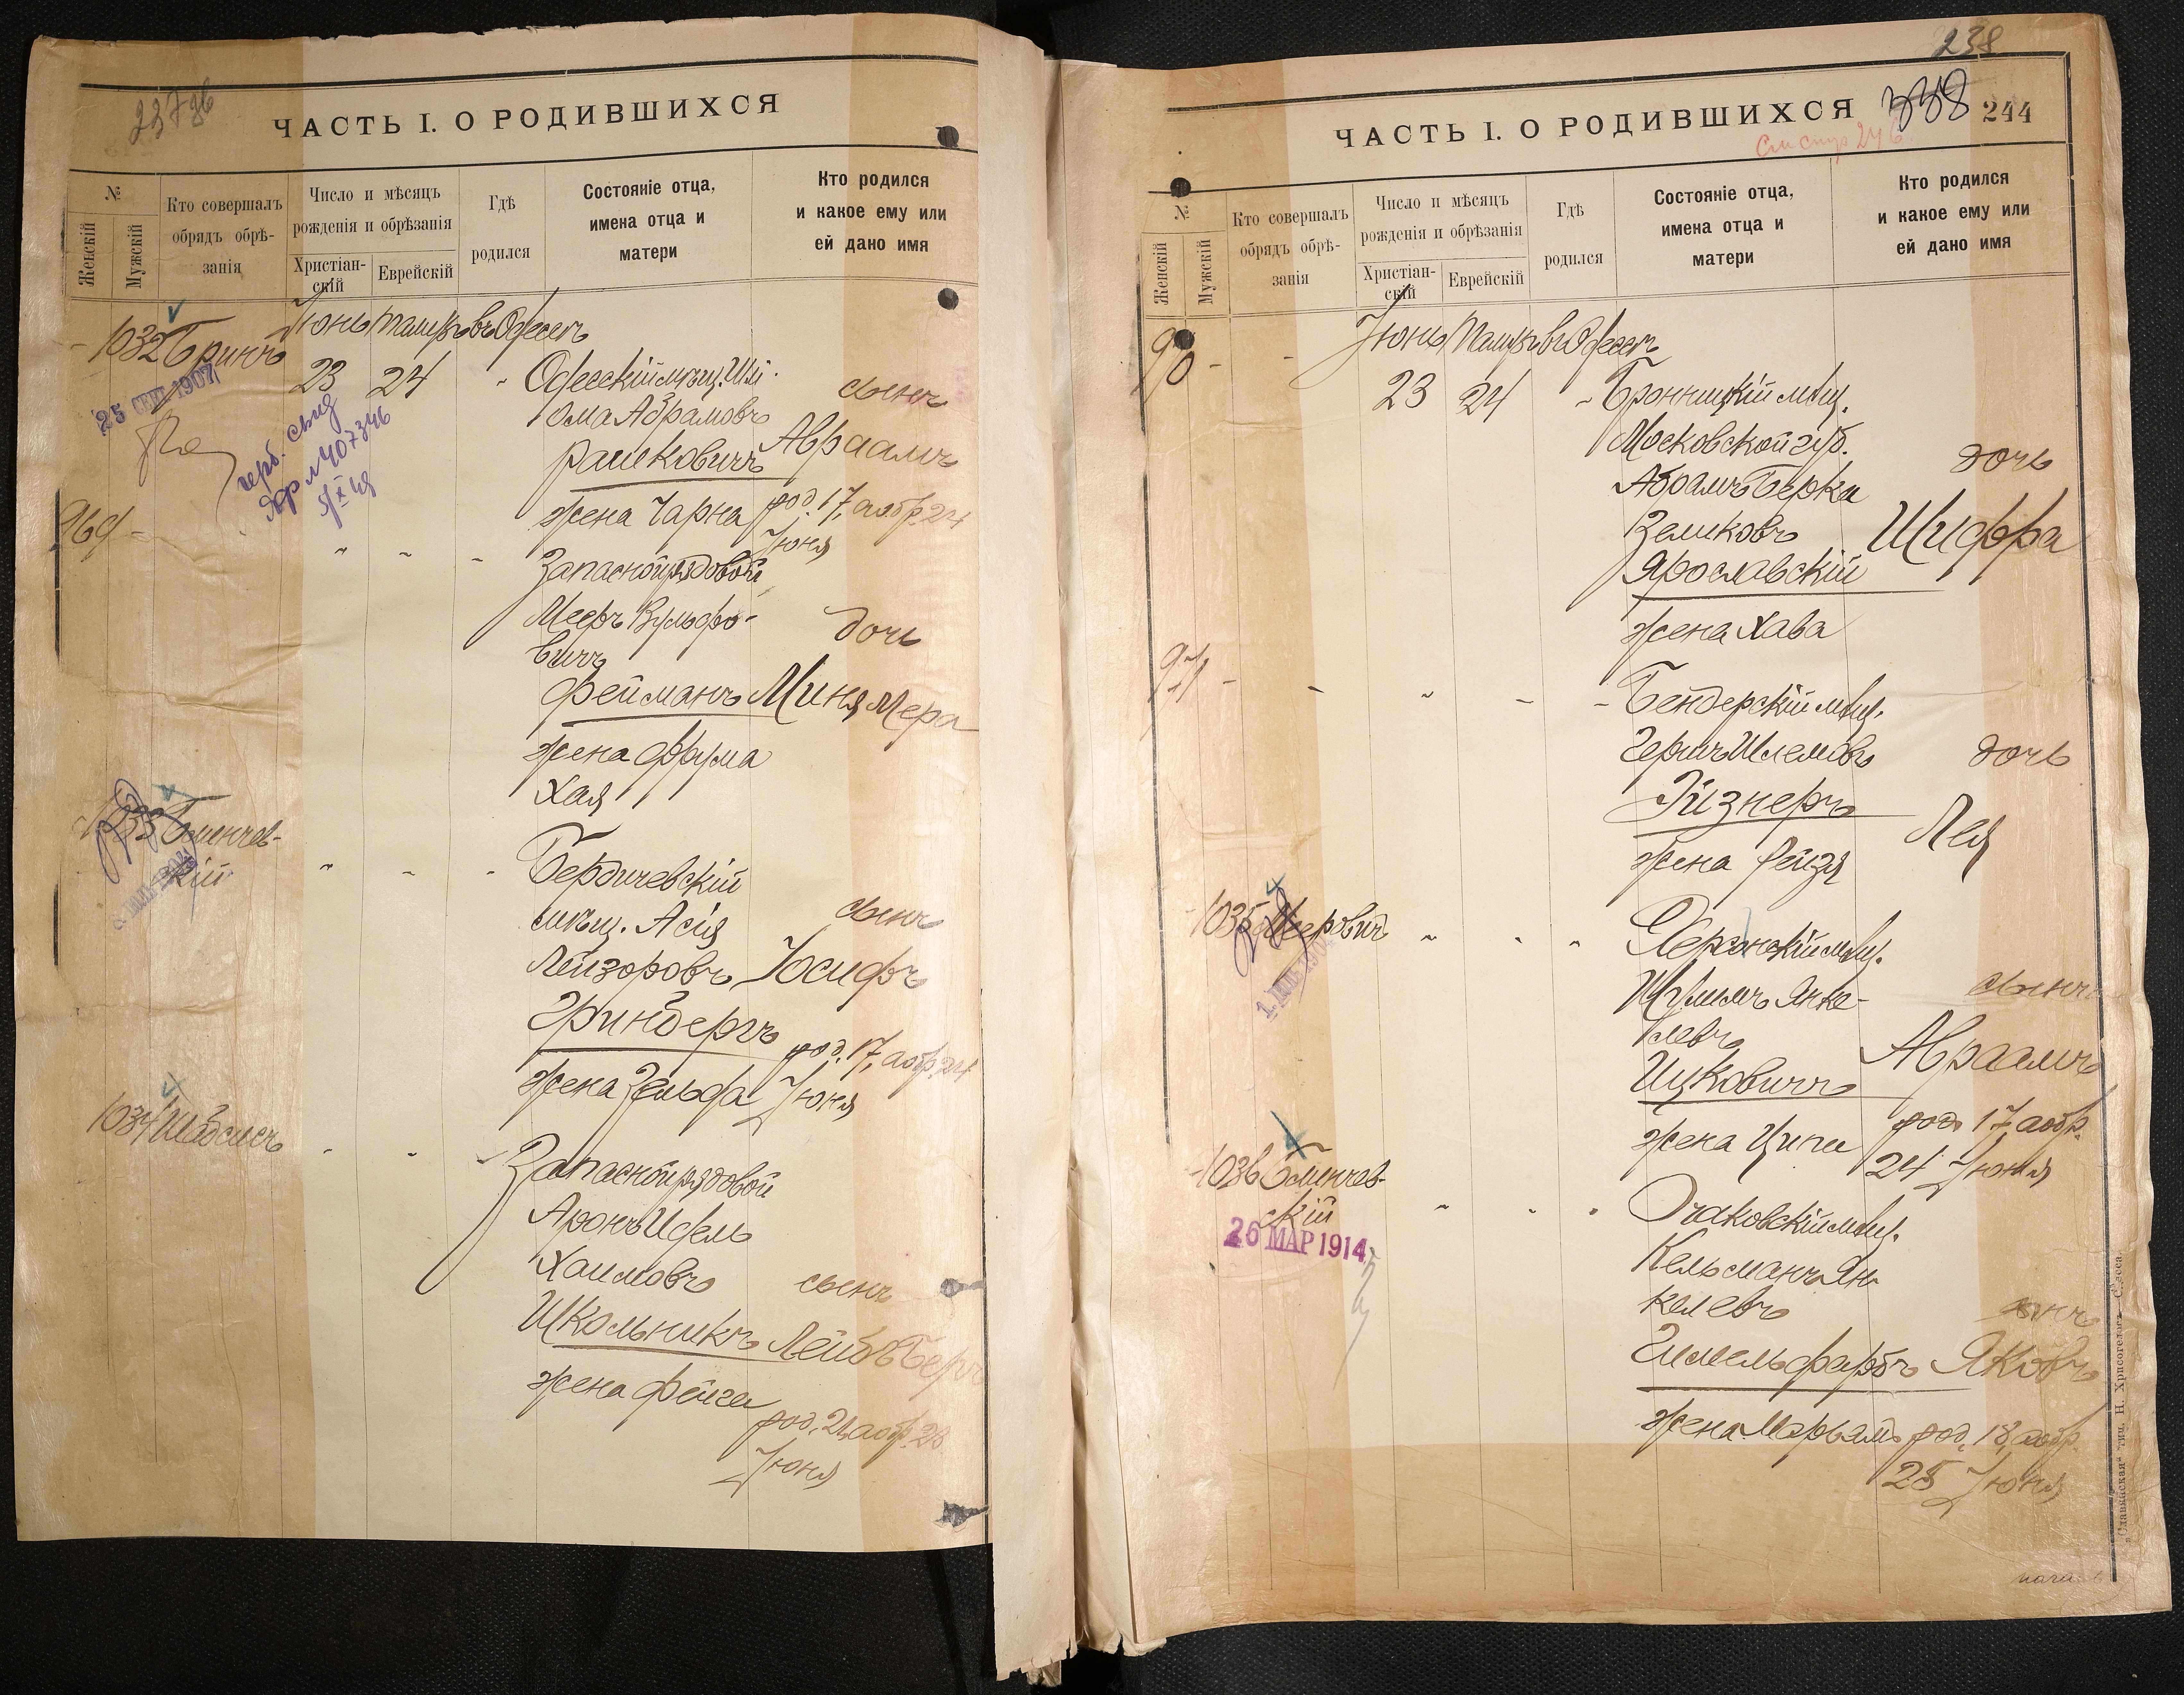 ЧАСТЬ I. О РОДИВШИХСЯ
№
Женскій
Мужскій
Кто совершалъ
обрядъ обрѣ-
занія
Число и мѣсяцъ
рожденія и обрѣзанія
Христіан-
скій
Еврейскій
Гдѣ
родился
Состояніе отца,
имена отца и
матери
Кто родился
и какое ему или
ей дано имя
1032 Бринъ
Іюнь Тамузъ въ Одессѣ
23 24
25 СЕН 1907
герб. сбид
407346
Одесскій мѣщ. Шлі-
ома Абрамовъ
Рашковичъ
жена Чарна
сынъ
Авраамъ
род. 17, аобр. 24
Іюня
969 -
Запасной рядовой
Мееръ Вульфо-
вичъ
Фейманъ
жена Фрума
Хая
дочь
Миня Мера
1033 Бленчев-
скій
Бердичевскій
мѣщ. Асія
Лейзоровъ
Гринбергъ
жена Зельфа
сынъ
Іосифъ
род. 17, аобр. 24
Іюня
1034 Шабсисъ
Запасной рядовой
Аронъ Идель
Хаимовъ
Школьникъ
жена Фейга
сынъ
Лейбъ Беръ
род. 21, аобр. 28
Іюня
238
ЧАСТЬ I. О РОДИВШИХСЯ
338
244
См стр 246
№
Женскій
Мужскій
Кто совершалъ
обрядъ обрѣ-
занія
Число и мѣсяцъ
рожденія и обрѣзанія
Христіан-
скій
Еврейскій
Гдѣ
родился
Состояніе отца,
имена отца и
матери
Кто родился
и какое ему или
ей дано имя
970 -
Іюнь Тамузъ въ Одессѣ
23 24
Бронницкій мѣщ.
Московской губ.
Абрамъ Берка
Зеликовъ
Ярославскій
жена Хава
дочь
Шифра
971 -
Бендерскій мѣщ.
Гершъ Шлемовъ
Гизнеръ
жена Рейзя
дочь
Лея
1035 Мееровичъ
Херсонскій мѣщ.
Шулимъ Янке-
левъ
Ицковичъ
жена Ципа
сынъ
Авраамъ
род. 17 аобр.
24 Іюня
1036 Бленчев-
скій
26 МАР 1914
Очаковскій мѣщ.
Кельманъ Ян-
келевъ
Гимельфарбъ
жена Марьямъ
сынъ
Яковъ
род. 18, аобр.
25 Іюня
„Славянская“ тип. Н. Хрисогелосъ, Одесса.